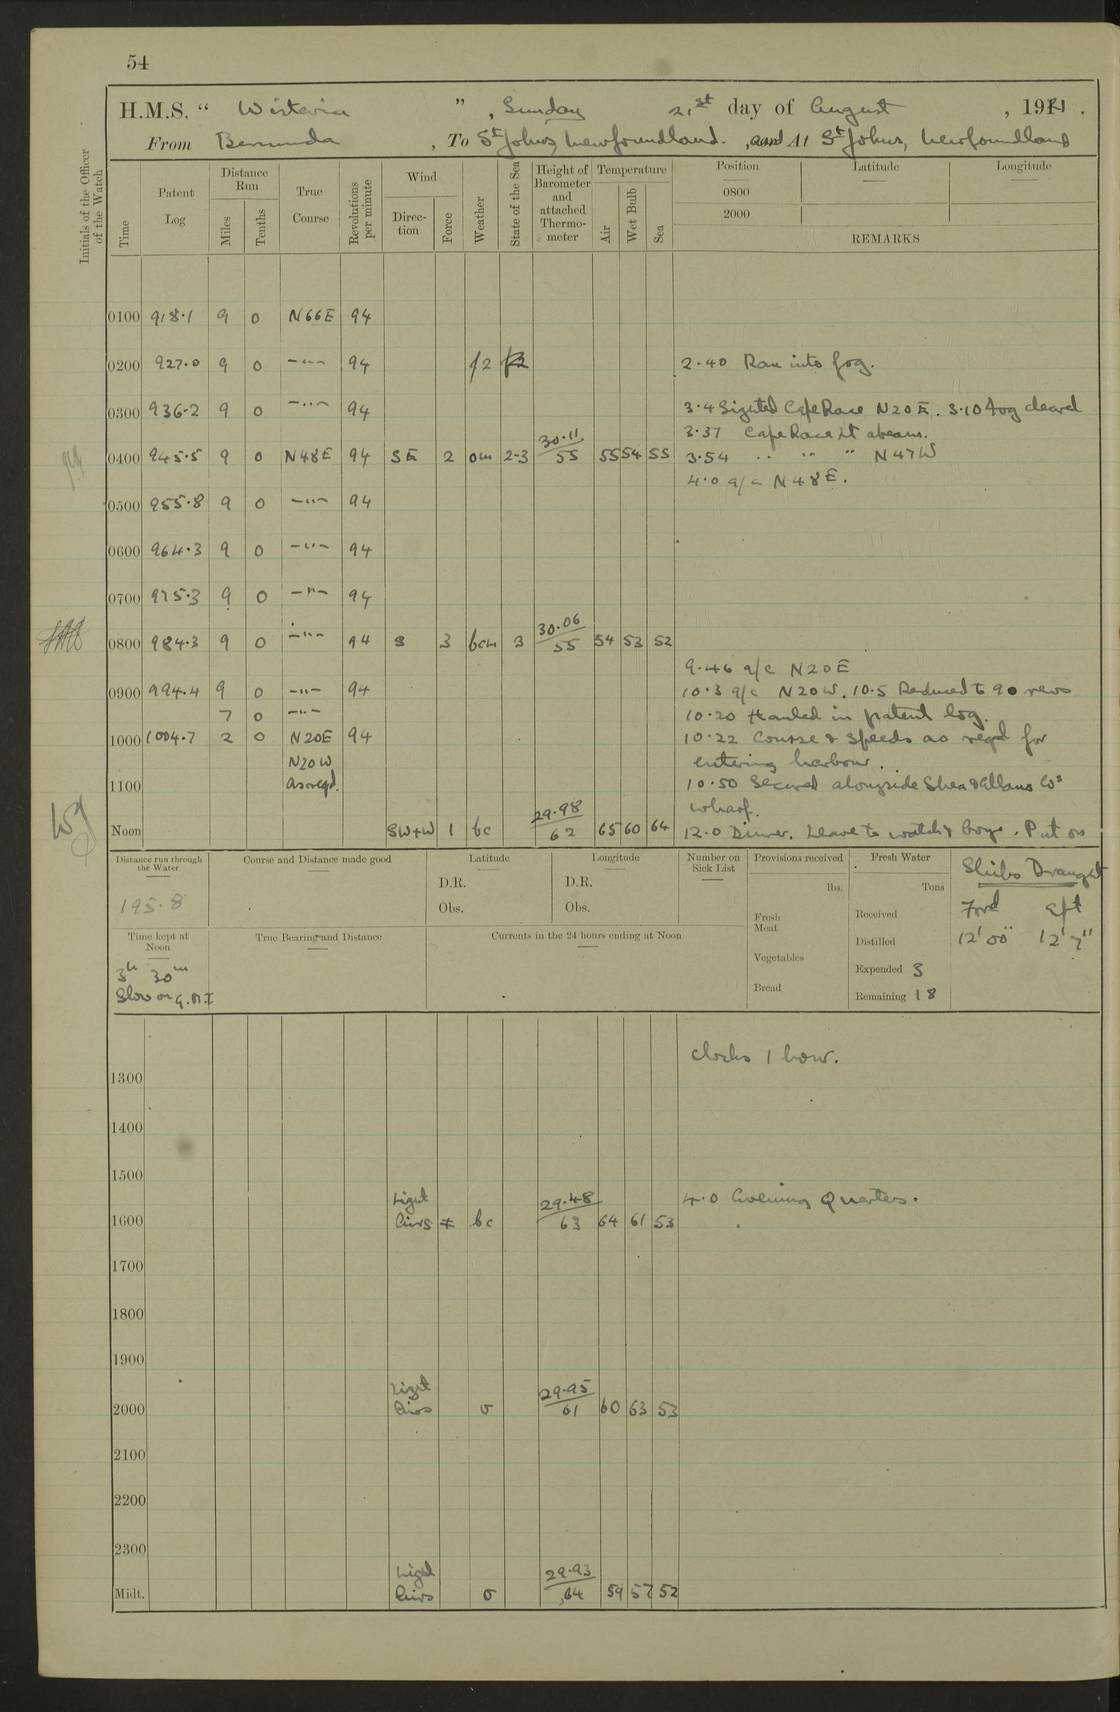 54
H.M.S. “ Wisteria ” , Sunday 21st day of August , 1921 .
From Bermuda , To St Johns, Newfoundland. , and At St Johns, Newfoundland
Initials of the Officer of the Watch
Time Patent Log Distance Run Miles Tenths True Course Revolutions per minute Wind Direction Force Weather State of the Sea Height of Barometer and attached Thermometer Temperature Air Wet Bulb Sea Position Latitude Longitude
0800
2000
REMARKS
0100 918.1 9 0 N66E 94
0200 927.0 9 0 -"- 94 f2 2.40 Ran into fog.
0300 936.2 9 0 -"- 94 3.4 Sighted Cape Race N20E. 3.10 Fog cleared
3.37 Cape Race Lt abeam.
0400 945.5 9 0 N48E 94 SE 2 om 2-3 30.11 55 55 54 55 3.54 " " " N47W
4.0 a/c N48E.
0500 955.8 9 0 -"- 94
0600 964.3 9 0 -"- 94
0700 975.3 9 0 -"- 94
0800 984.3 9 0 -"- 94 S 3 bcm 3 30.06 55 54 53 52
9.46 a/c N20E
0900 994.4 9 0 -"- 94 10.3 a/c N20W. 10.5 Reduced to 90 revs
7 0 -"- 10.20 Hauled in patent log.
1000 1004.7 2 0 N20E 94 10.22 Course & Speeds as reqd for
N20W entering harbour.
1100 As reqd. 10.50 Secured alongside Shea & Allans Cos
wharf.
Noon SW+W 1 bc 29.98 62 65 60 64 12.0 Dinner. Leave to watch & boys. Put on
Distance run through the Water Course and Distance made good Latitude Longitude Number on Sick List Provisions received Fresh Water Ships Draught
D.R. D.R. lbs. Tons
195.8 Obs. Obs. Fresh Meat Received Ford Aft
Time kept at Noon True Bearing and Distance Currents in the 24 hours ending at Noon Distilled 12' 00" 12' 7"
Vegetables
3h 30m Expended 3
Slow on G.M.T Bread Remaining 18
clocks 1 hour.
1300
1400
1500
1600 Light Airs bc 29.48 63 64 61 53 4.0 Evening Quarters.
1700
1800
1900
2000 Light Airs o 29.95 61 60 63 53
2100
2200
2300
Midt. Light Airs o 29.93 64 59 57 52